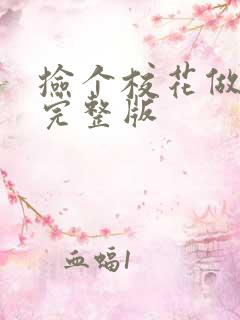 捡个校花做
完整版
血蝠1